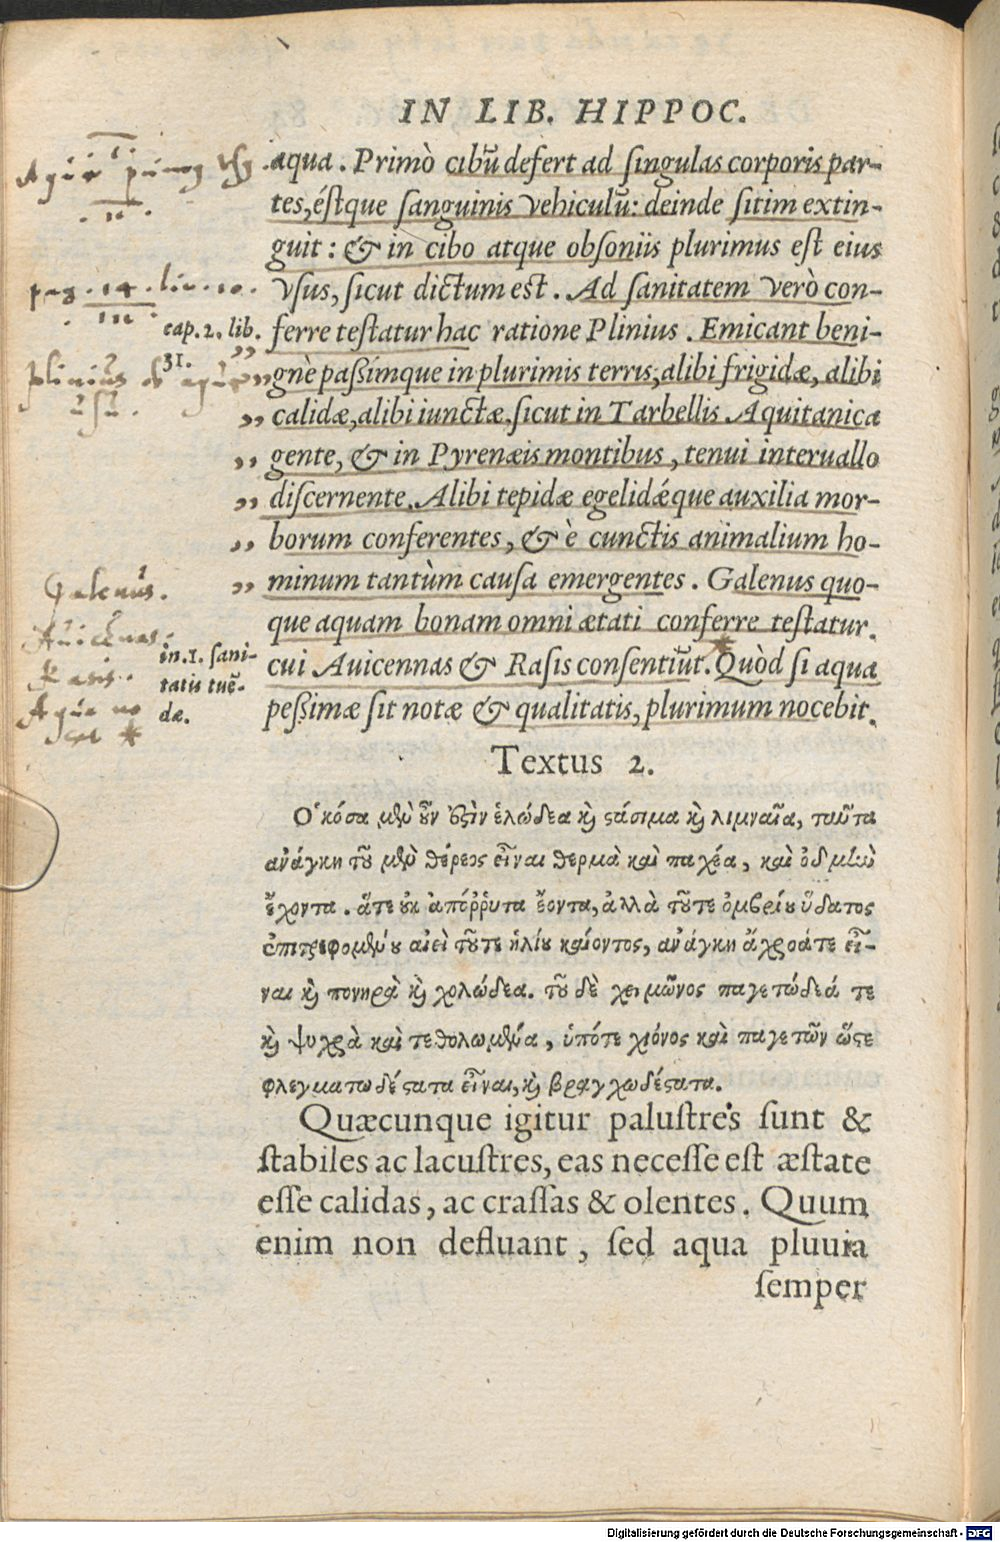 IN LIB. HIPPOC.
aqua. Primò cibũ defert ad singulas corporis par-
tes, éstque sanguinis vehiculũ: deinde sitim extin-
guit: & in cibo atque obsoniis plurimus est eius
vsus, sicut dictum est. Ad sanitatem verò con-
ferre testatur hac ratione Plinius. Emicant beni-
gnè passimque in plurimis terris, alibi frigidæ, alibi
calidæ, alibi iunctæ, sicut in Tarbellis Aquitanica
gente, & in Pyrenæis montibus, tenui interuallo
discernente. Alibi tepidæ egelidǽque auxilia mor-
borum conferentes, & è cunctis animalium ho-
minum tantùm causa emergentes. Galenus quo-
que aquam bonam omni ætati conferre testatur.
cui Auicennas & Rasis consentiũt. Quòd si aqua
pessimæ sit notæ & qualitatis, plurimum nocebit.
pag. 14. lin. 10.
cap. 2. lib.
31.
Plinius de aquæ
usu.
Galenus.
Auicẽnas.
Rasis.
in. 1. sani-
tatis tuẽ-
dæ.
Textus 2.
Ὁκόσα μὲν οὖν ἐστὶν ἑλώδεα καὶ στάσιμα καὶ λιμναῖα, ταῦτα
ἀνάγκη τοῦ μὲν θέρεος εἶναι θερμὰ καὶ παχέα, καὶ ὀδμὴν
ἔχοντα. ἅτε οὐκ ἀπόῤῥυτα ἔοντα, ἀλλὰ τοῦτε ὀμβρίου ὕδατος
ἐπιτρεφομένου αἰεὶ τοῦτε ἡλίου καίοντος, ἀνάγκη ἄχροάτε εἶ-
ναι καὶ πονηρὰ καὶ χολώδεα. τοῦ δὲ χειμῶνος παγετώδεά τε
καὶ ψυχρὰ καὶ τεθολωμένα, ὑπότε χιόνος καὶ παγετῶν ὥστε
φλεγματωδέστατα εἶναι, καὶ βραγχωδέστατα.
Quæcunque igitur palustres sunt &
stabiles ac lacustres, eas necesse est æstate
esse calidas, ac crassas & olentes. Quum
enim non defluant, sed aqua pluuia
semper
Digitalisierung gefördert durch die Deutsche Forschungsgemeinschaft - DFG